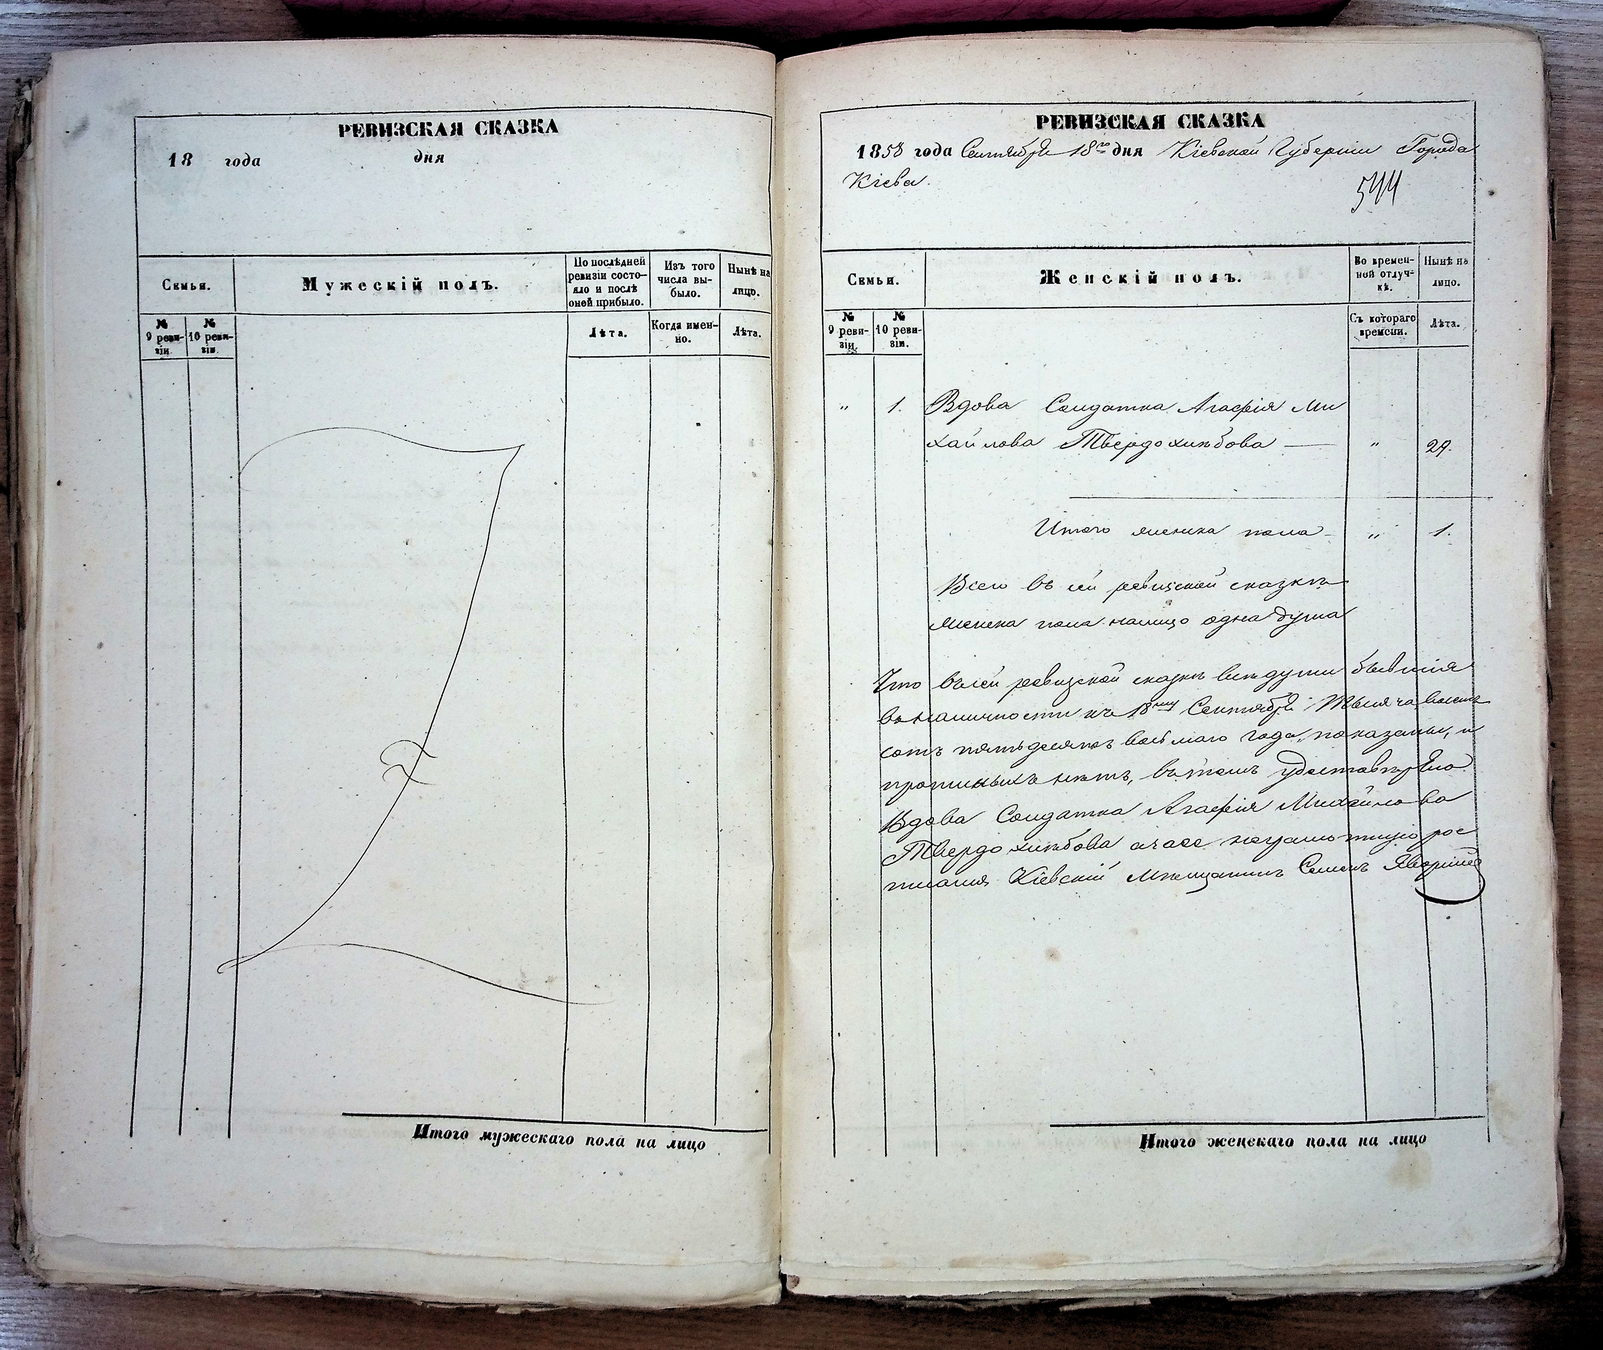 РЕВИЗСКАЯ СКАЗКА
18 года дня
Семьи.
Мужескій полъ.
По послѣдней
ревизіи состо-
яло и послѣ
оней прибыло.
Изъ того
числа вы-
было.
Нынѣ на
лицо.
№
9 реви-
зіи
№
10 реви-
зіи.
Лѣта.
Когда имен-
но.
Лѣта.
Итого мужескаго пола на лицо
РЕВИЗСКАЯ СКАЗКА
1858 года Сентября 18го дня Кіевской Губерніи Города
Кіева.
544
Семьи.
Женскій полъ.
Во времен-
ной отлуч-
кѣ.
Нынѣ на
лицо.
№
9 реви-
зіи
№
10 реви-
зіи.
Съ котораго
времени.
Лѣта.
" 1. Вдова Солдатка Агафія Ми
хайлова Твердохлѣбова — " 29.
Итого женска пола - " 1.
Всего въ сей ревизской сказкѣ
женска пола налицо одна душа
Что въ сей ревизской сказкѣ всѣ души бывшія
въ наличности къ 18му Сентября Тысяча восемь
сотъ пятьдесятъ восьмаго года, показаны, и
прописныхъ нѣтъ, въ томъ
Вдова Солдатка Агафія Михайлова
Твердохлѣбова а за ее неграмотную рос
писался Кіевскій Мѣщанинъ Семенъ
Итого женскаго пола на лицо